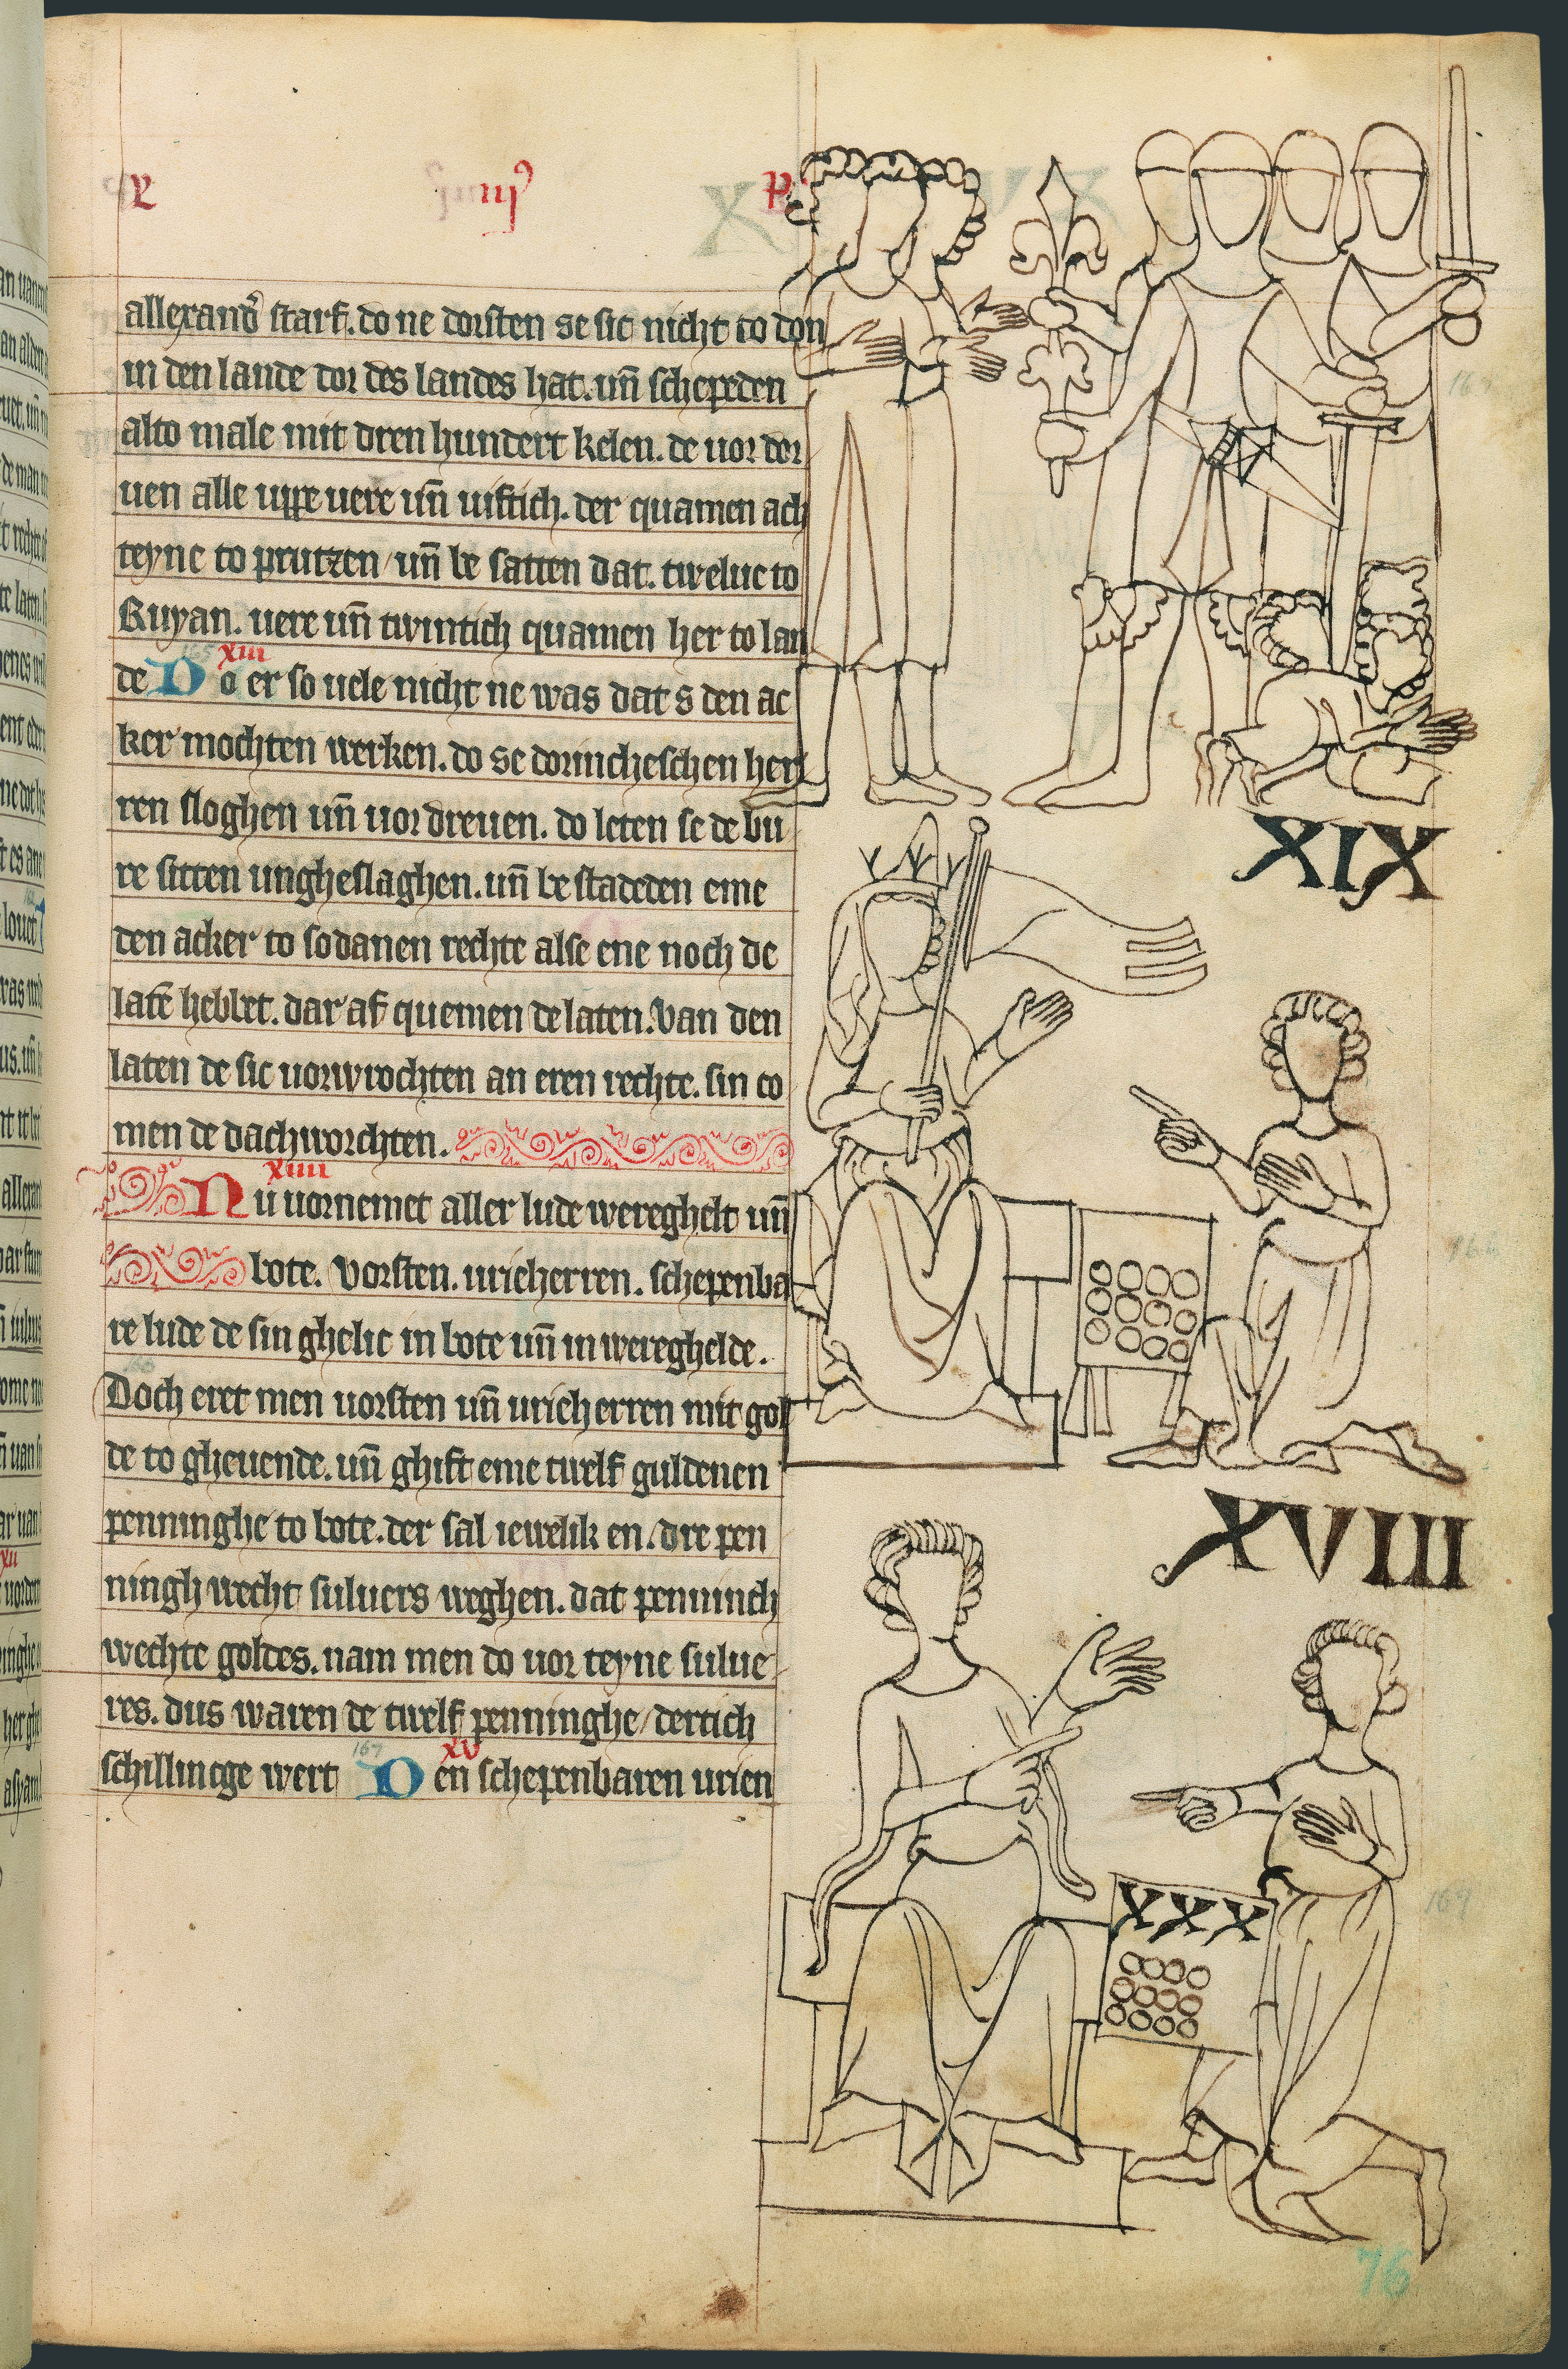 allexand᷒ starf. do ne dorsten se sic nicht to don
in den lande dor des landes hat. un̄ schepeden
alto male mit dren hundert kelen. de uor dor
uen alle uppe uere un̄ uiftich. der quamen ach
teyne to prutzen / un̄ be satten dat. twelue to
Ruyan. uere un̄ twintich quamen her to lan
xiii
de Do er so uele nicht ne was dat s den ac
ker mochten werken. do se dorincheschen her
ren sloghen un̄ uordreuen. do leten se de bu
re sitten ungheslaghen. un̄ be stadeden eme
den acker to sodanen rechte alse ene noch de
latē hebbet. dar af quemen de laten. Van den
laten de sic uorwrochten an eren rechte. sin co
men de dachworchten.
xiiii
Nu uornemet aller lude wereghelt un̄
bote. Vorsten. uricherren. schepenba
re lude de sin ghelic in bote un̄ in wereghelde.
Doch eret men uorsten un̄ uricherren mit gol
de to gheuende. un̄ ghift eme twelf guldenen
penninghe to bote. der sal iewelik en. dre pen
ningh wecht suluers weghen. dat penninch
wechte goldes. nam men do uor teyne sulue
res. dus waren de twelf penninghe / dertich
xv
schillincge wert Den schepenbaren urien
165
167
XIX
XVIII
XXX
169
76